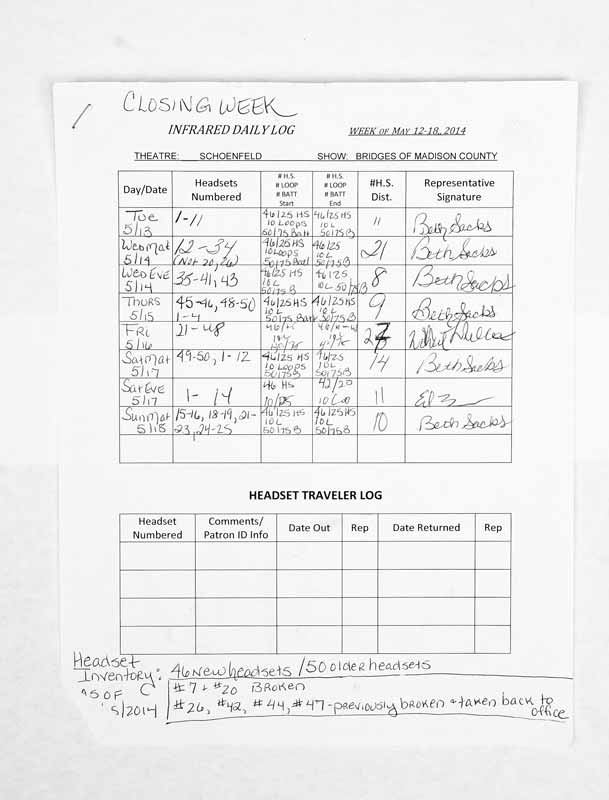 CLOSING WEEK
INFRARED DAILY LOG WEEK OF MAY 12-18, 2014
THEATRE: SCHOENFELD SHOW: BRIDGES OF MADISON COUNTY
Day/Date Headsets Numbered # H.S. # LOOP # BATT Start # H.S. # LOOP # BATT End #H.S. Dist. Representative Signature
Tue 5/13 1-11 46/25 HS 10 Loops 50/75 Batt 46/25 HS 10 L 50/75 B 11 Beth Sacks
Wed Mat 5/14 12-34 (Not 20, 26) 46/25 HS 10 Loops 50/75 Batt 46/25 10 L 50/75 B 21 Beth Sacks
Wed Eve 5/14 35-41, 43 46/25 HS 10 L 50/75 B 46/25 10 L 50/75 B 8 Beth Sacks
Thurs 5/15 45-46, 48-50 1-4 46/25 HS 10 L 50/75 Batt 46/25 HS 10 L 50/75 B 9 Beth Sacks
Fri 5/16 21-48
Sat Mat 5/17 49-50, 1-12 46/25 HS 10 Loops 50/75 B 46/25 10 L 50/75 B 14 Beth Sacks
Sat Eve 5/17 1-14 46 HS 42/20 11
Sun Mat 5/18 15-16, 18-19, 21-23, 24-25 46/25 HS 10 L 50/75 B 46/25 HS 10 L 50/75 B 10 Beth Sacks
HEADSET TRAVELER LOG
Headset Numbered Comments/ Patron ID Info Date Out Rep Date Returned Rep
Headset
Inventory: 46 New headsets / 50 older headsets
AS OF #7 + #20 Broken
5/2014 #26, #42, #44, #47 - previously broken + taken back to office